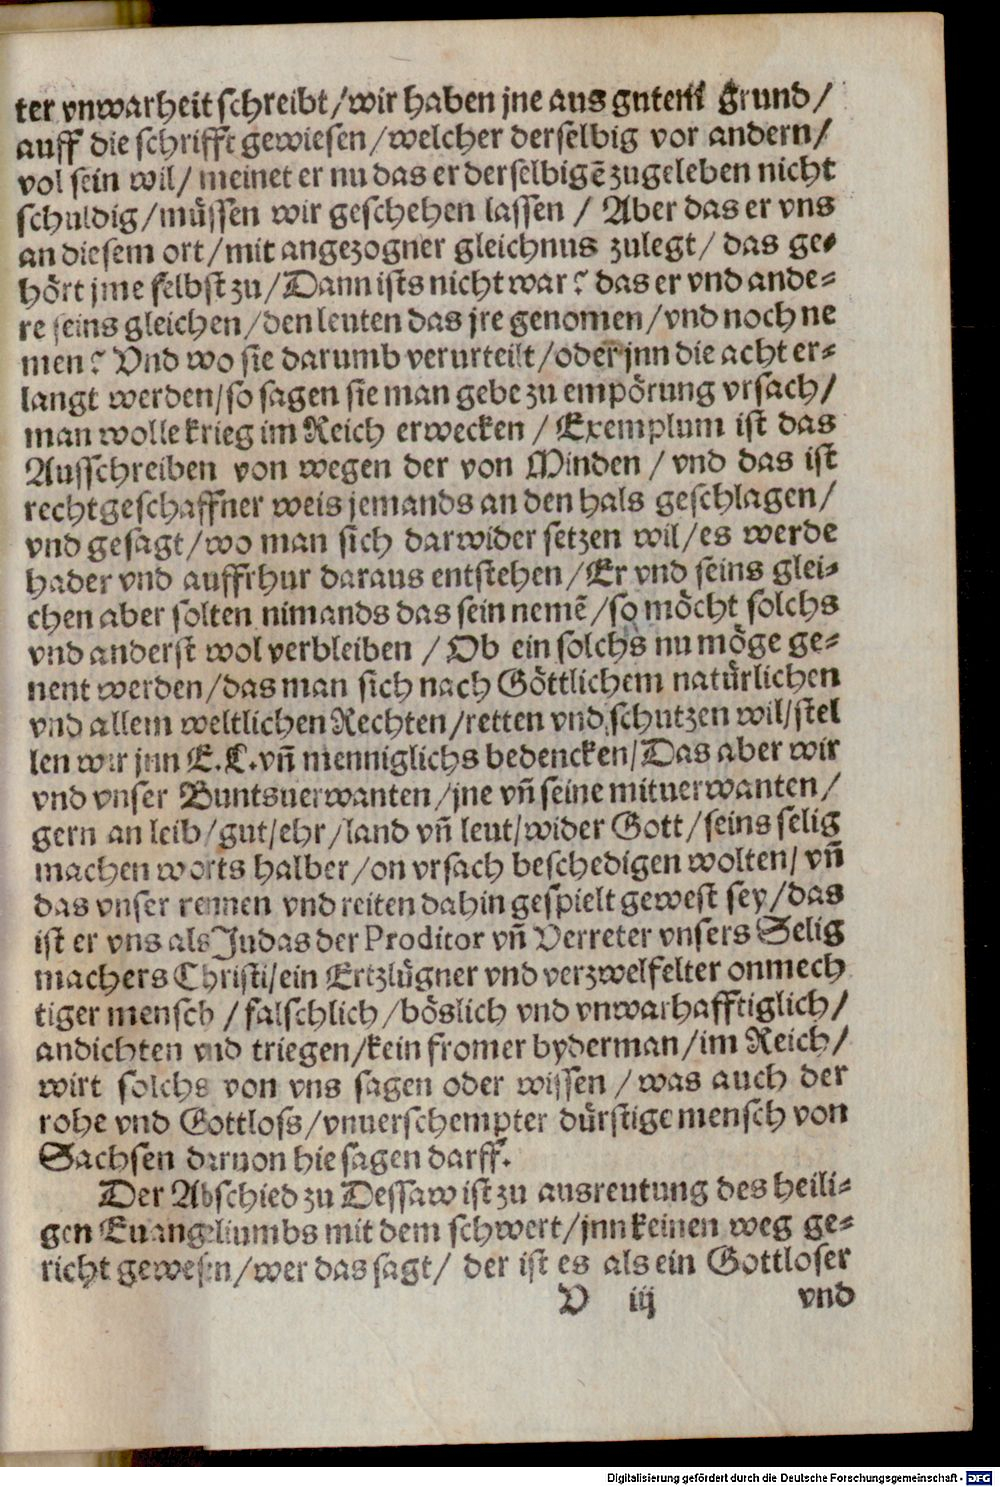 ter vnwarheit schreibt/wir haben jne aus gutem grund/
auff die schrifft gewiesen/welcher derselbig vor andern/
vol sein wil/ meinet er nu das er derselbigē zugeleben nicht
schuldig/müssen wir geschehen lassen / Aber das er vns
an diesem ort/mit angezogner gleichnus zulegt/ das ge-
hört jme selbst zu/Dann ists nicht war? das er vnd ande-
re seins gleichen/den leuten das jre genomen/vnd noch ne
men? Vnd wo sie darumb verurteilt/oder jnn die acht er-
langt werden/so sagen sie man gebe zu empörung vrsach/
man wolle krieg im Reich erwecken / Exemplum ist das
Ausschreiben von wegen der von Minden / vnd das ist
rechtgeschaffner weis jemands an den hals geschlagen/
vnd gesagt/wo man sich darwider setzen wil/es werde
hader vnd auffrhur daraus entstehen/Er vnd seins glei-
chen aber solten nimands das sein nemē/so möcht solchs
vnd anderst wol verbleiben / Ob ein solchs nu möge ge-
nent werden/das man sich nach Göttlichem natürlichen
vnd allem weltlichen Rechten/retten vnd schutzen wil/stel
len wir jnn E.L.vñ menniglichs bedencken/Das aber wir
vnd vnser Buntsuerwanten/jne vñ seine mituerwanten/
gern an leib/gut/ehr/land vñ leut/wider Gott/seins selig
machen worts halber/on vrsach beschedigen wolten/ vñ
das vnser rennen vnd reiten dahin gespielt gewest sey/das
ist er vns als Judas der Proditor vñ Verreter vnsers Selig
machers Christi/ein Ertzlügner vnd verzwelfelter onmech
tiger mensch / falschlich/böslich vnd vnwarhafftiglich/
andichten vnd triegen/kein fromer byderman/im Reich/
wirt solchs von vns sagen oder wissen / was auch der
rohe vnd Gottloss/vnuerschempter dürstige mensch von
Sachsen daruon hie sagen darff.
Der Abschied zu Dessaw ist zu ausreutung des heili-
gen Euangeliumbs mit dem schwert/jnn keinen weg ge-
richt gewesen/wer das sagt/ der ist es als ein Gottloser
V iij vnd
Digitalisierung gefördert durch die Deutsche Forschungsgemeinschaft - DFG